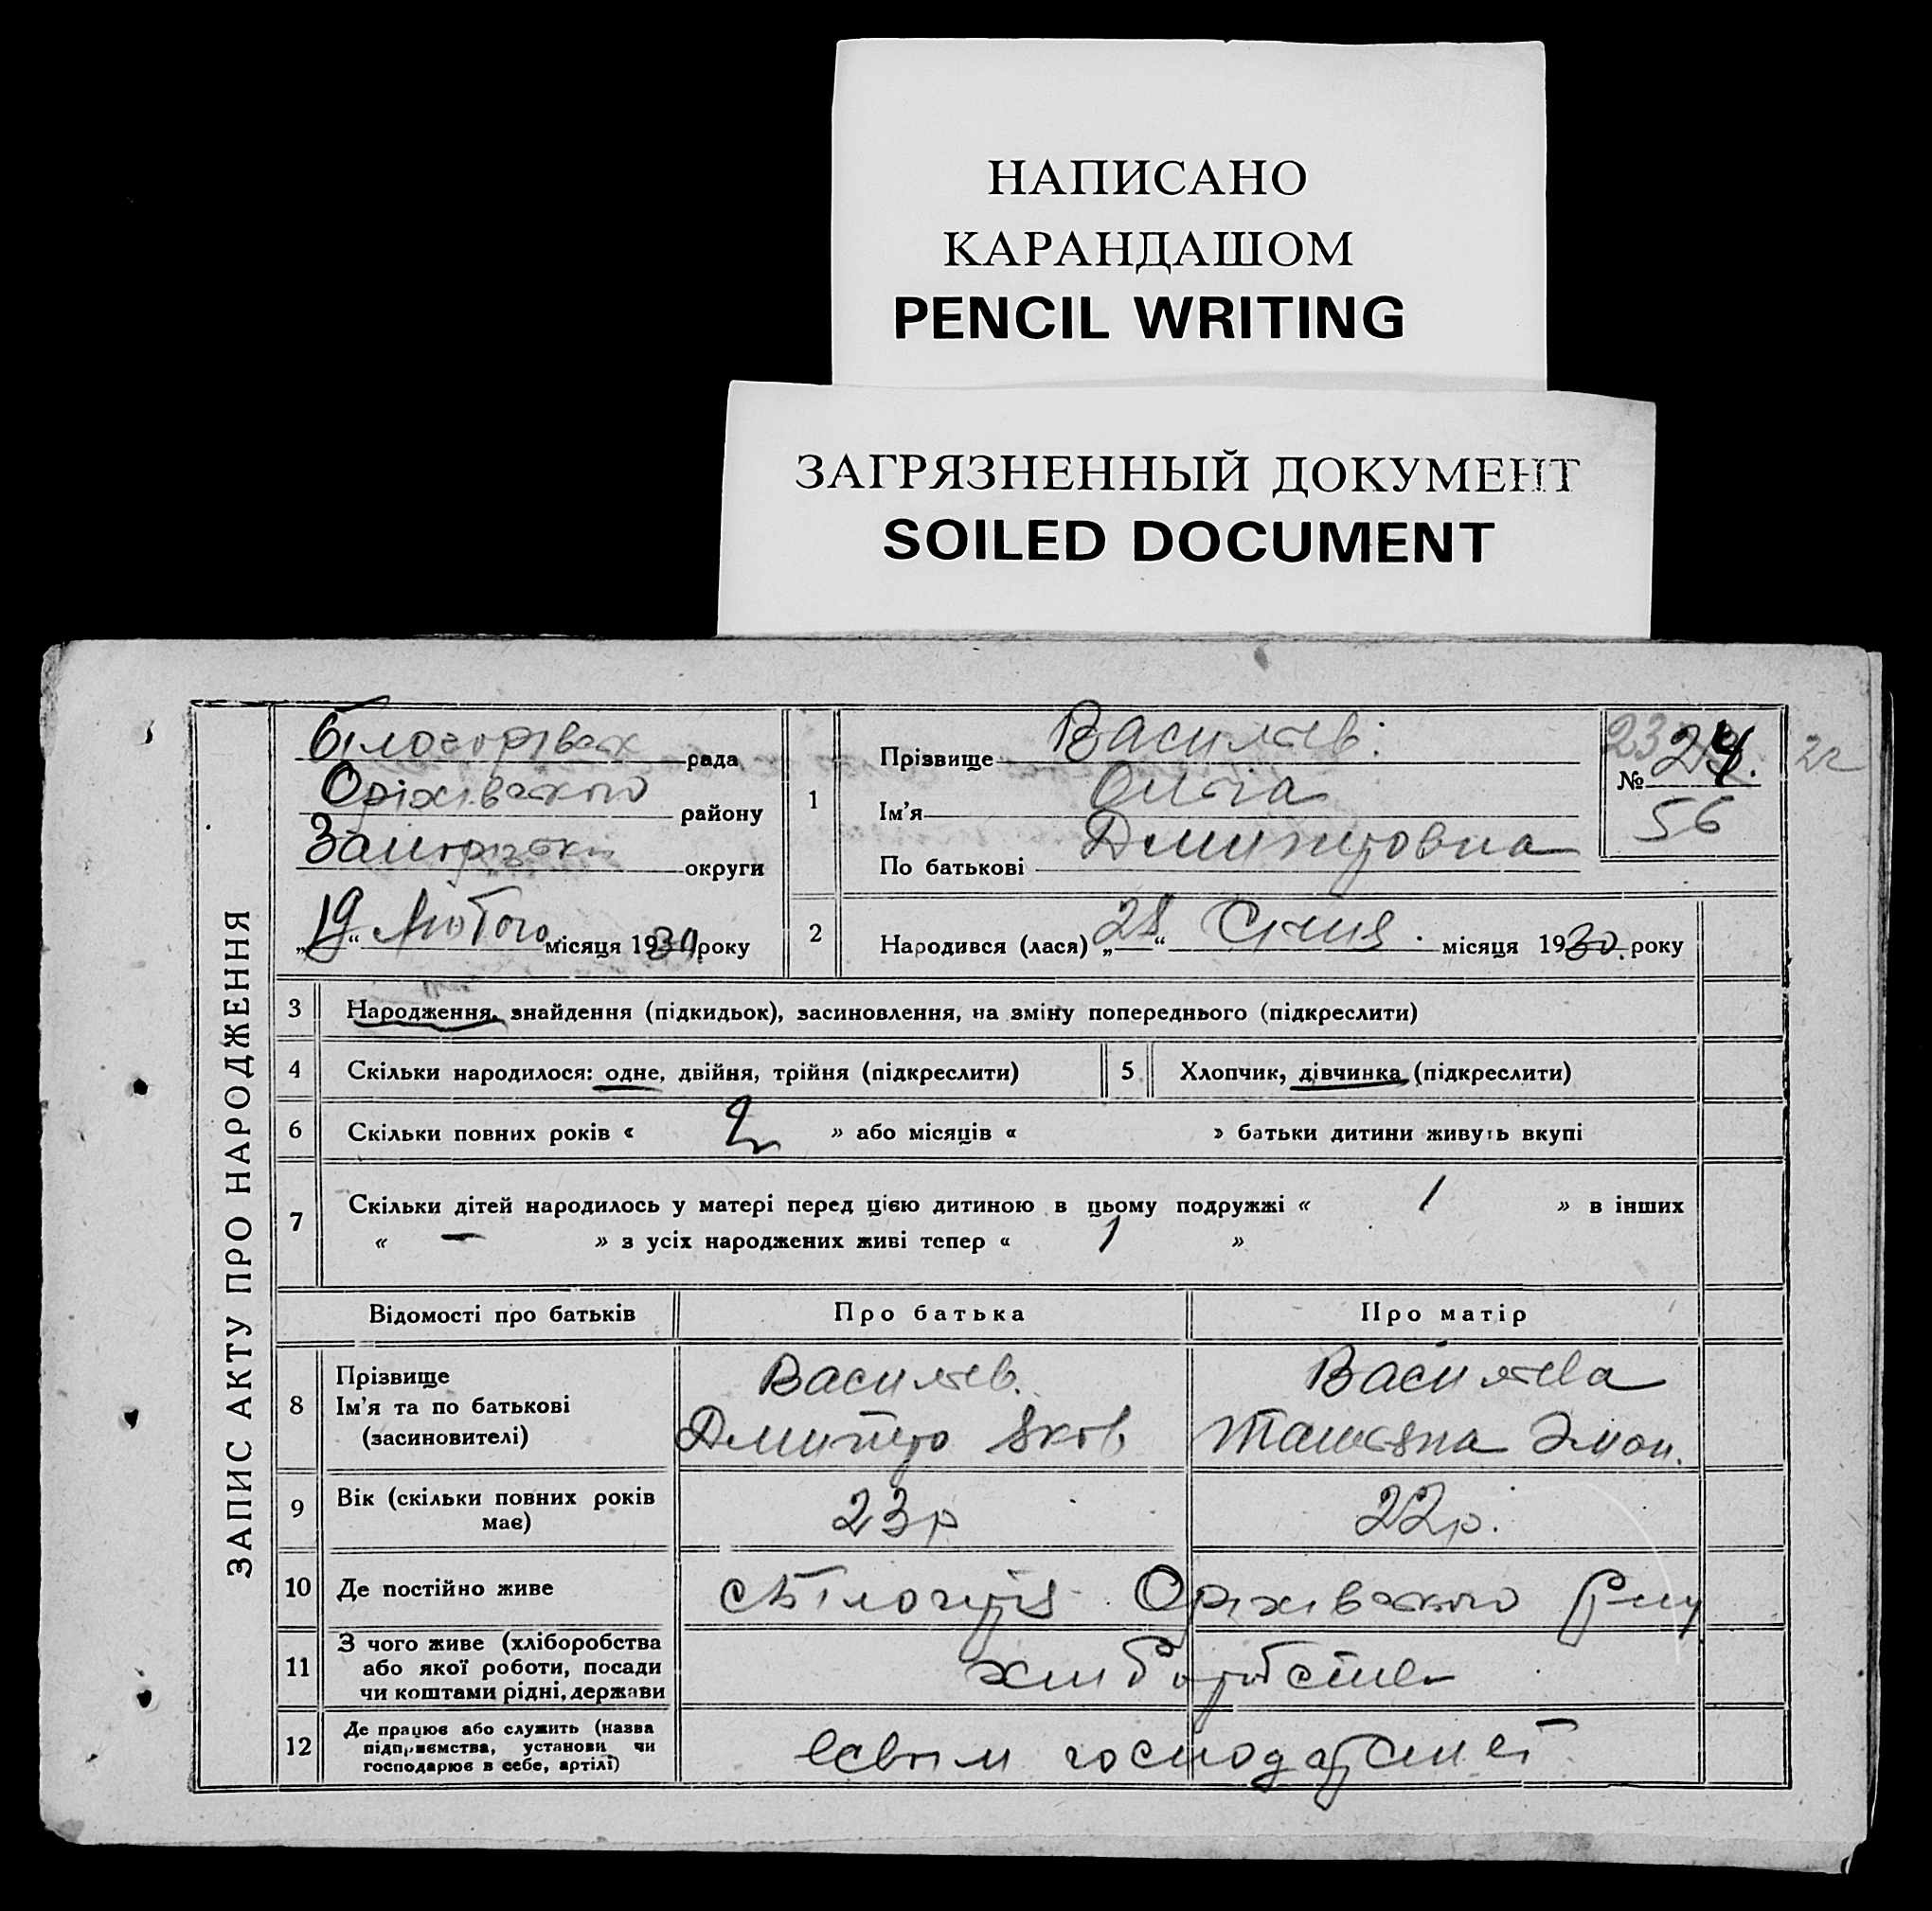 НАПИСАНО
КАРАНДАШОМ
PENCIL WRITING
ЗАГРЯЗНЕННЫЙ ДОКУМЕНТ
SOILED DOCUMENT
ЗАПИС АКТУ ПРО НАРОДЖЕННЯ
рада
Оріхівського району
округи
„19“ Лютого місяця 1930 року
1
Прізвище Василєв.
Ім'я Ольга
По батькові Дмитровна
23
№ 24.
56
22
2
Народився (лася) „28“ Січня. місяця 1930. року
3 Народження, знайдення (підкидьок), засиновлення, на зміну попереднього (підкреслити)
4 Скільки народилося: одне, двійня, трійня (підкреслити)
5 Хлопчик, дівчинка (підкреслити)
6 Скільки повних років « 2 » або місяців « » батьки дитини живуть вкупі
7 Скільки дітей народилось у матері перед цією дитиною в цьому подружжі « 1 » в інших
« — » з усіх народжених живі тепер « 1 »
Відомості про батьків Про батька Про матір
8 Прізвище
Ім'я та по батькові
(засиновителі)
Василєв.
Дмитро Яков
Василєва
Татьяна
9 Вік (скільки повних років
має)
23 р
22 р.
10 Де постійно живе
Оріхівського р-ну
11 З чого живе (хліборобства
або якої роботи, посади
чи коштами рідні, держави
хліборобства
12 Де працює або служить (назва
підприємства, установи чи
господарює в себе, артілі)
господарстві